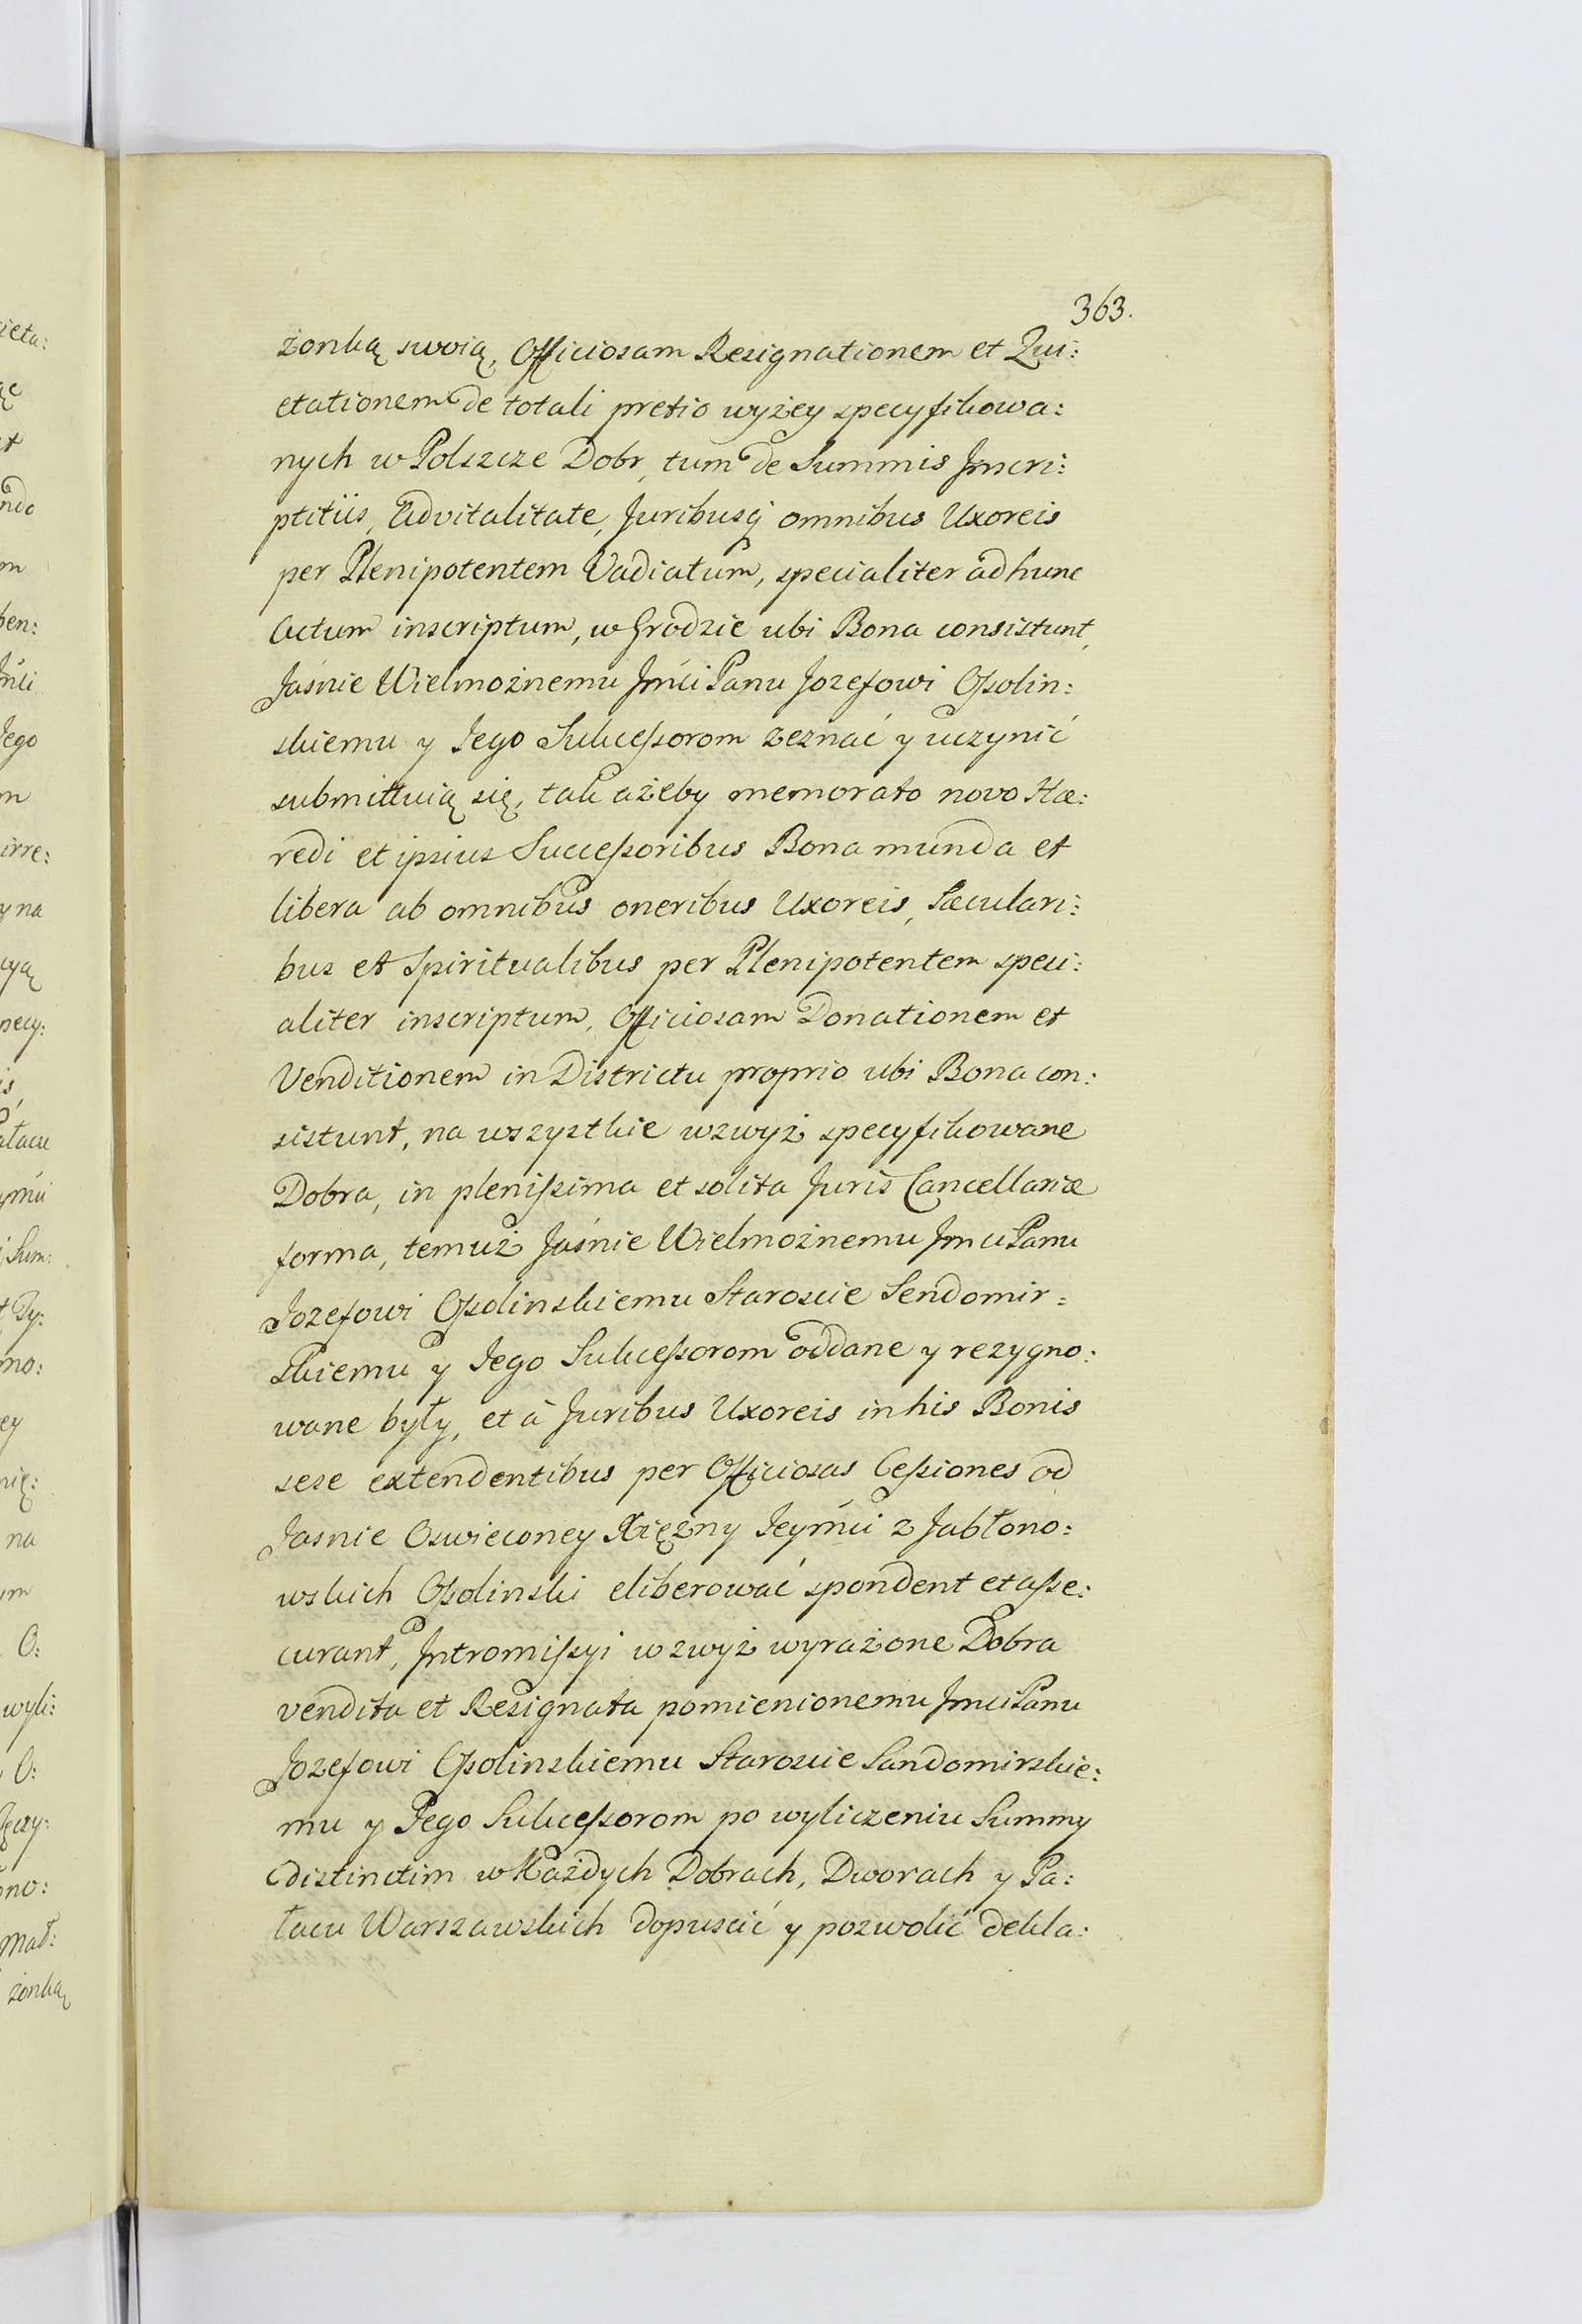 363.
żonką swoią, Officiosam Resignationem et Qui:
etationem de totali pretio wyżey specyfikowa:
nych w Polszcze Dobr, tum de Summis Inscri:
ptitiis, Advitalitate, Juribusq omnibus Uxoreis
per Plenipotentem Vadiatum, specialiter ad hunc
Actum inscriptum, w Grodzie ubi Bona consistunt,
Jaśnie Wielmożnemu Jmći Panu Jozefowi Ossolin:
skiemu y Jego Sukcessorom zeznać y uczynić
submittuią się, tak ażeby memorato novo Hæ:
redi et ipsius Successoribus Bona munda et
libera ab omnibus oneribus Uxoreis, Sæculari:
bus et Spiritualibus per Plenipotentem speci:
aliter inscriptum, Officiosam Donationem et
Venditionem in Districtu proprio ubi Bona con:
sistunt, na wszystkie wzwyż specyfikowane
Dobra, in plenissima et solita Juris Cancellariæ
forma, temuż Jaśnie Wielmożnemu Jmci Panu
Jozefowi Ossolinskiemu Staroscie Sendomir:
skiemu y Jego Sukcessorom oddane y rezygno:
wane były, et à Juribus Uxoreis in his Bonis
sese extendentibus per Officiosas Cessiones od
Jasnie Oswieconey Xiężny Jeymći z Jabłono:
wskich Ossolinski eliberować spondent et asse:
curant, Intromissyi wzwyż wyrażone Dobra
vendita et Resignata pomienionemu Jmci Panu
Jozefowi Ossolinskiemu Staroscie Sandomirskie:
mu y Jego Sukcessorom po wyliczeniu Summy
distinctim w Każdych Dobrach, Dworach y Pa:
łacu Warszawskich dopuscić y pozwolić dekla: